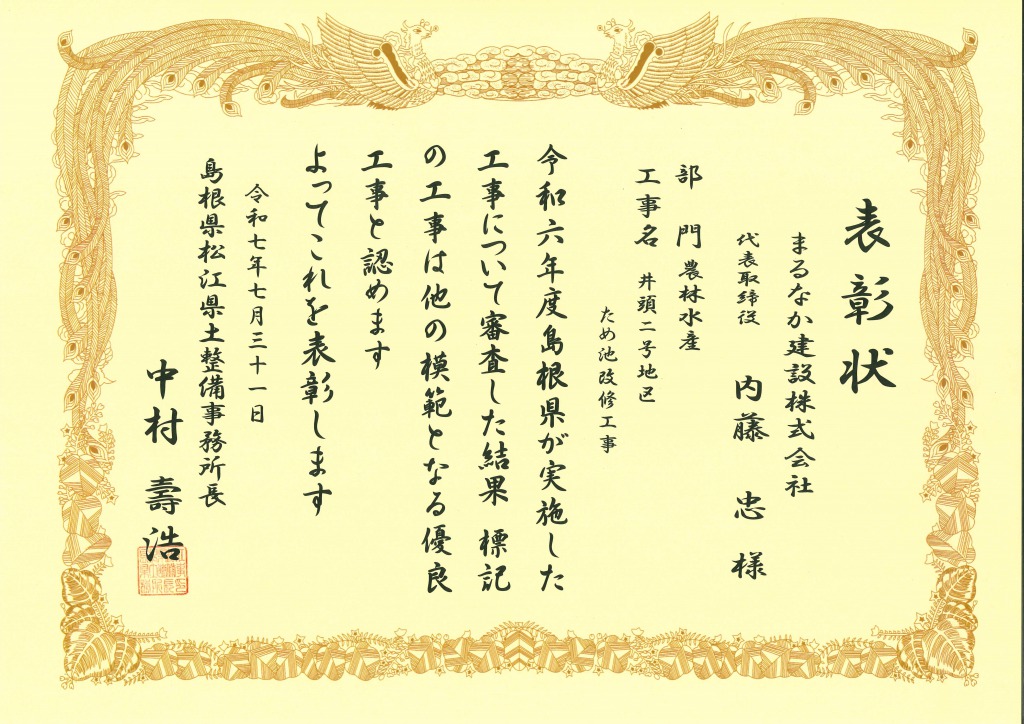 表彰状
まるなか建設株式会社
代表取締役 内藤 忠 様
部 門 農林水産
工事名 井頭二号地区
ため池改修工事
令和六年度島根県が実施した
工事について審査した結果 標記
の工事は他の模範となる優良
工事と認めます
よってこれを表彰します
令和七年七月三十一日
島根県松江県土整備事務所長
中村 壽浩